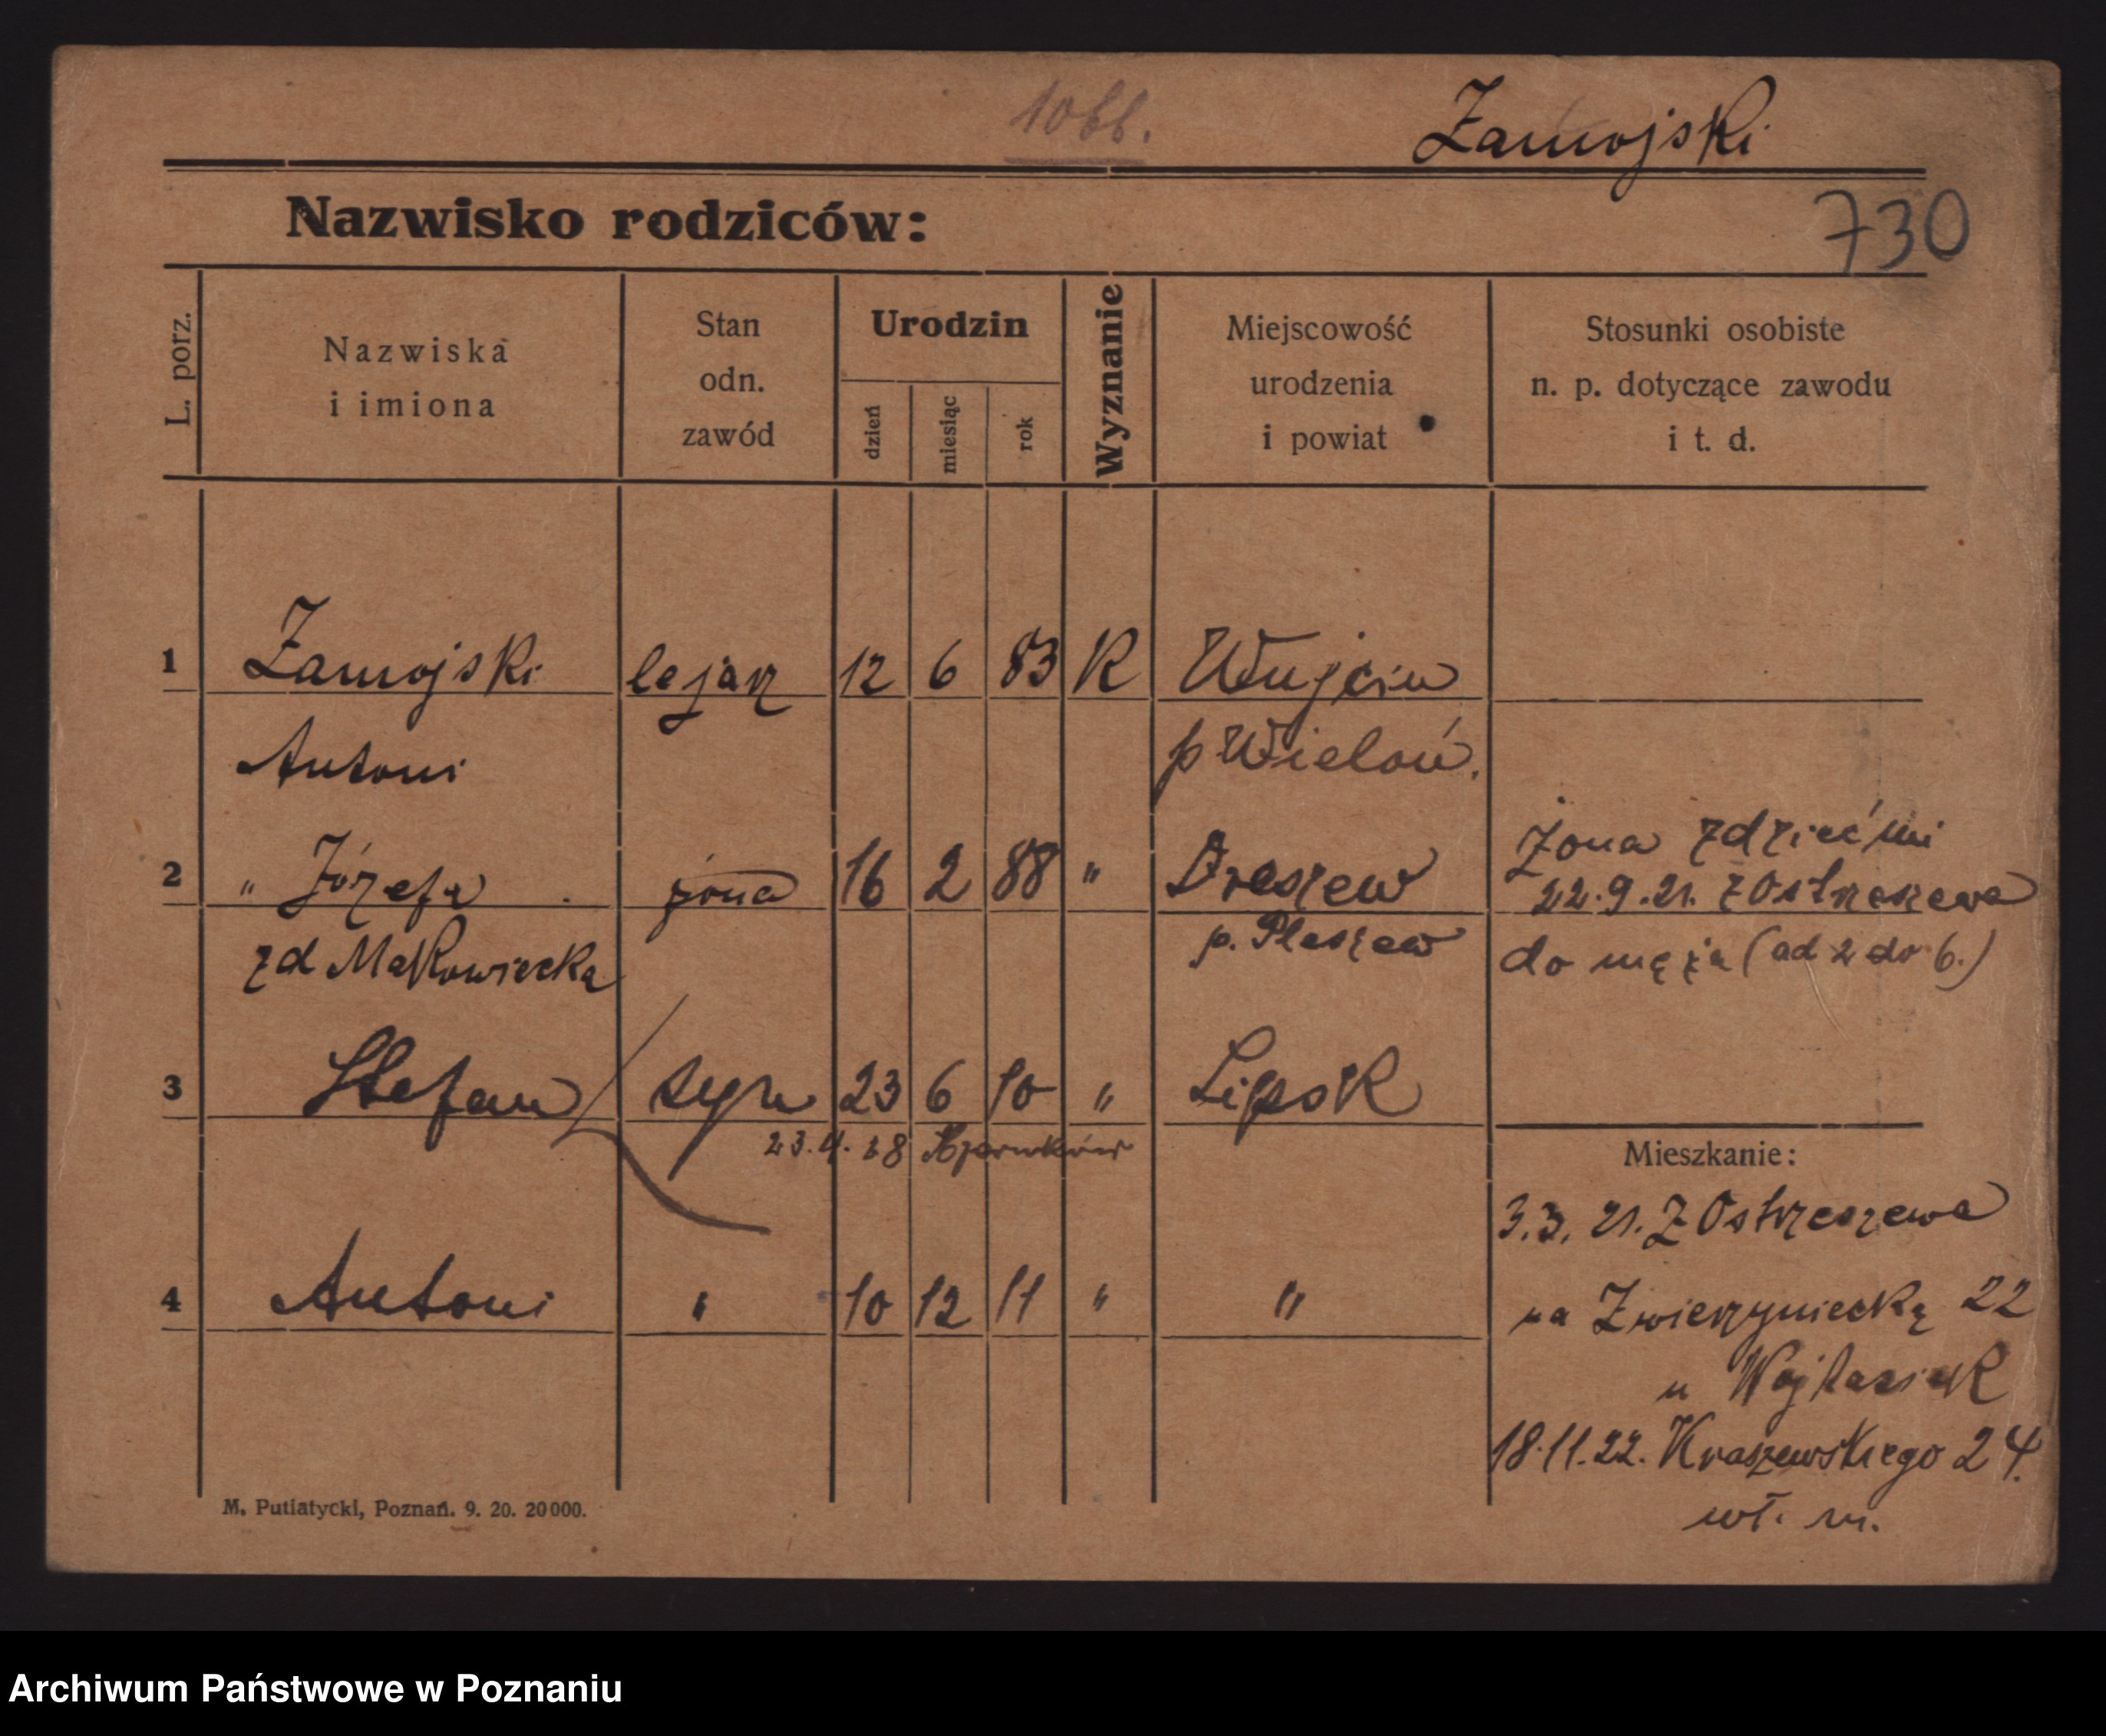 1066.
Zamojski
730
Nazwisko rodziców:
L. porz.
Nazwiska
i imiona
Stan
odn.
zawód
Urodzin
dzień
miesiąc
rok
Wyznanie
Miejscowość
urodzenia
i powiat
Stosunki osobiste
n. p. dotyczące zawodu
i t. d.
1 Zamojski lejarz 12 6 83 K Wujcin
Antoni p Wieluń.
2 " Józefa żona 16 2 88 " Droszew
zd Makowiecka p. Pleszew
żona z dziećmi
22.9.21. z Ostrzeszewa
do męża (od 2 do 6.)
3 Stefan syn 23 6 10 " Lipsk
23.4.28 Czarnków
4 Antoni " 10 12 11 " "
Mieszkanie:
3.3.21. Z Ostrzeszewa
na Zwierzyniecką 22
u Wojtasiak
18.11.22. Kraszewskiego 24.
wł. m.
M. Putiatycki, Poznań. 9. 20. 20000.
Archiwum Państwowe w Poznaniu